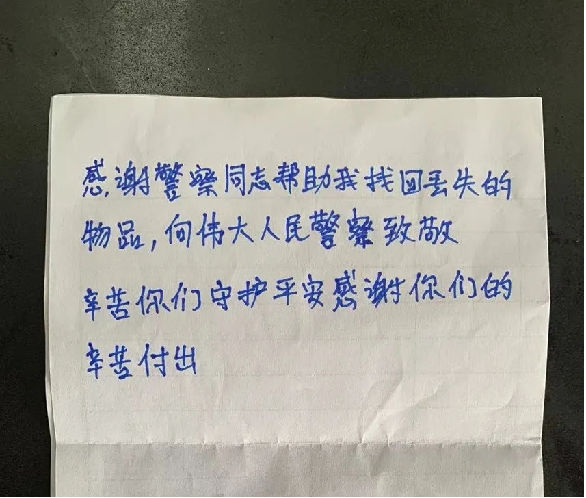 感谢警察同志帮助我找回丢失的
物品,向伟大人民警察致敬
辛苦你们守护平安感谢你们的
辛苦付出